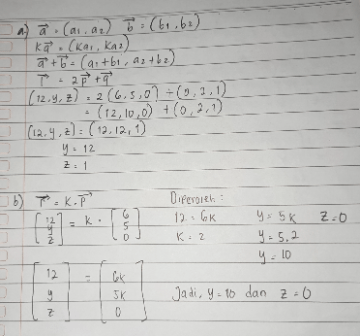 a) a⃗ = (a₁, a₂) b⃗ = (b₁, b₂)
ka⃗ = (ka₁, ka₂)
a⃗ + b⃗ = (a₁ + b₁, a₂ + b₂)
r⃗ = 2p⃗ + q⃗
(12, y, z) = 2 (6, 5, 0) + (0, 2, 1)
= (12, 10, 0) + (0, 2, 1)
(12, y, z) = (12, 12, 1)
y = 12
z = 1
b) r⃗ = k . p⃗
[12 y z] = k . [6 5 0]
[12 y z] = [6k 5k 0]
Diperoleh :
12 = 6k
k = 2
y = 5k
y = 5.2
y = 10
z = 0
Jadi, y = 10 dan z = 0